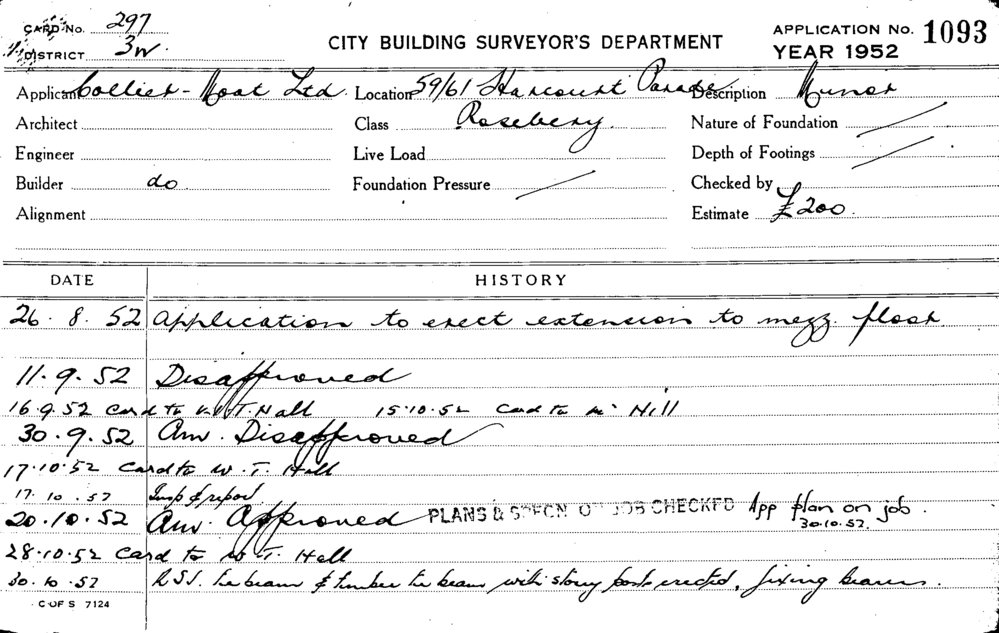 CARD No. 297
DISTRICT 3W.
CITY BUILDING SURVEYOR'S DEPARTMENT
APPLICATION No. 1093
YEAR 1952
Applicant Collier-Moat Ltd. Location 59/61 Harcourt Parade Description Minor
Architect Class Rosebery. Nature of Foundation
Engineer Live Load Depth of Footings
Builder do Foundation Pressure Checked by
Alignment Estimate £200.
DATE HISTORY
26. 8. 52 Application to erect extension to mezz floor
11. 9. 52 Disapproved
16.9.52 Card to W.T. Hall 15.10.52 Card to Mr Hill
30. 9. 52 Am. Disapproved
17.10.52 Card to W. T. Hall
17. 10. 52 Insp & report
20. 10. 52 Am. Approved PLANS & SPECN. ON JOB CHECKED App plan on job.
30.10.52.
28.10.52 Card to W. T. Hall
30. 10. 52 R.S.J. tie beam & timber tie beam with storey post erected, fixing bearers.
C OF S 7124